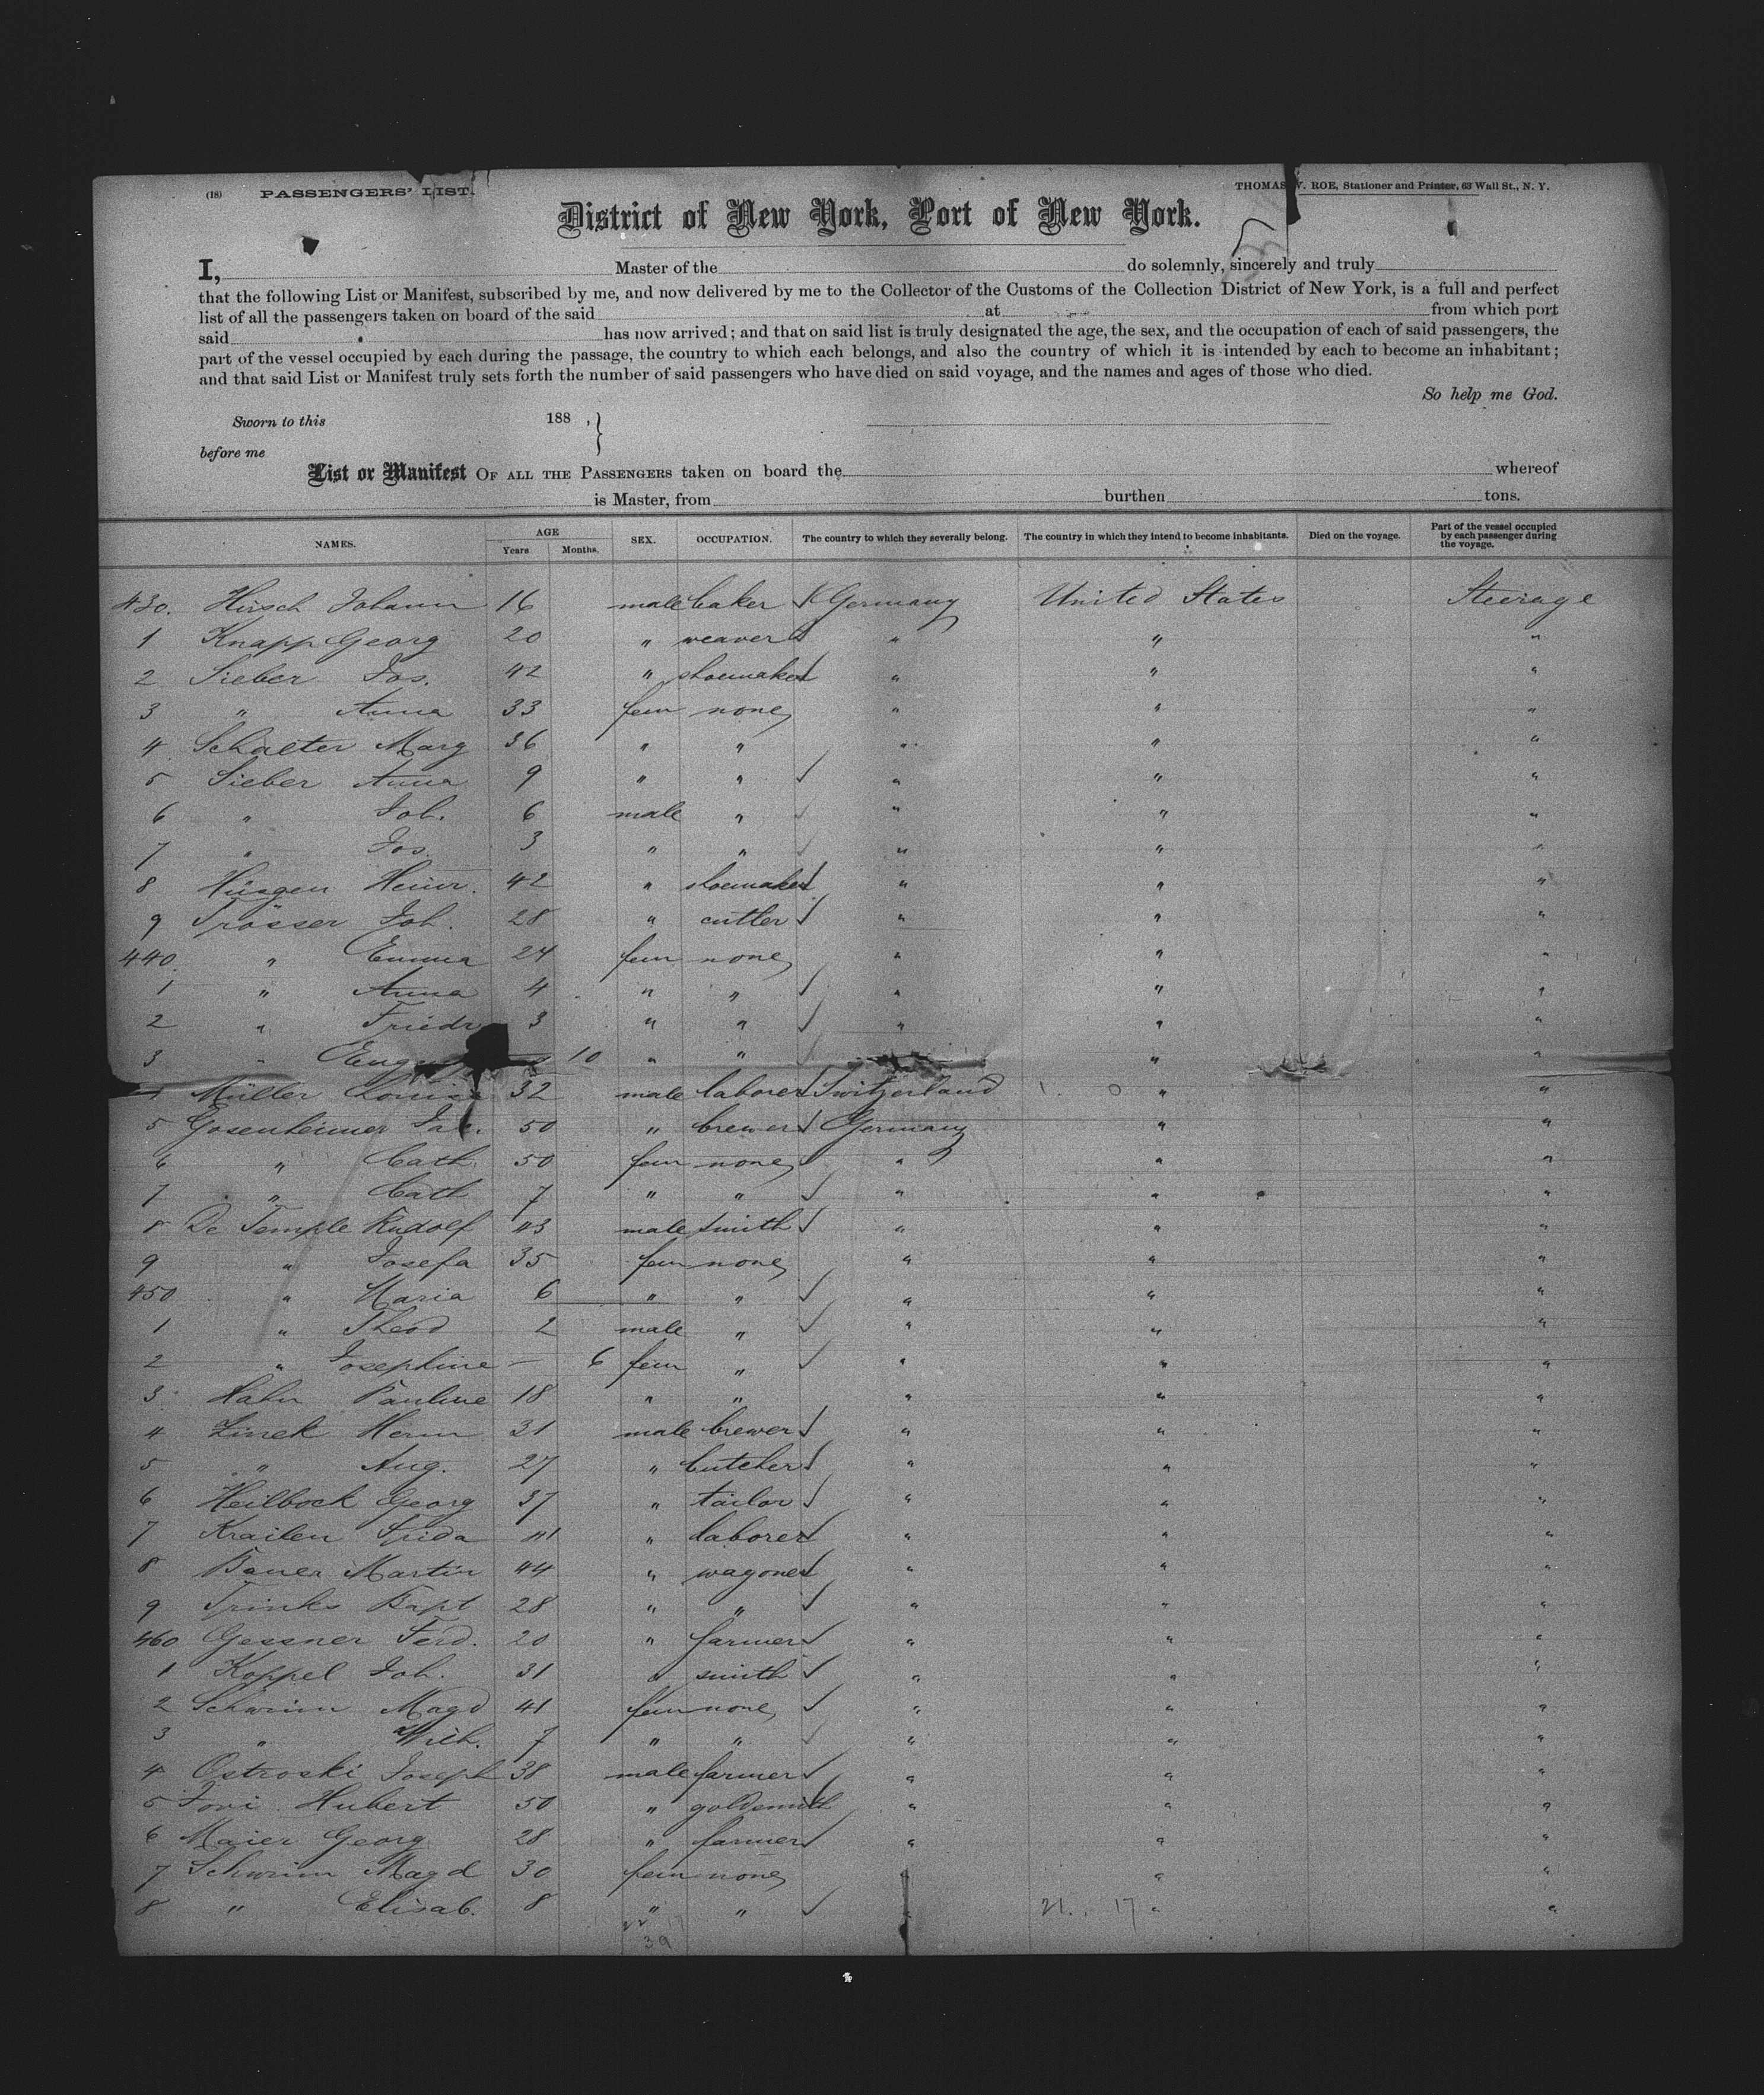 (18) PASSENGERS' LIST. THOMAS W. ROE, Stationer and Printer, 63 Wall St., N. Y.
District of New York, Port of New York.
I, Master of the do solemnly, sincerely and truly
that the following List or Manifest, subscribed by me, and now delivered by me to the Collector of the Customs of the Collection District of New York, is a full and perfect
list of all the passengers taken on board of the said at from which port
said has now arrived; and that on said list is truly designated the age, the sex, and the occupation of each of said passengers, the
part of the vessel occupied by each during the passage, the country to which each belongs, and also the country of which it is intended by each to become an inhabitant;
and that said List or Manifest truly sets forth the number of said passengers who have died on said voyage, and the names and ages of those who died.
So help me God.
Sworn to this 188 , }
before me
List or Manifest OF ALL THE PASSENGERS taken on board the whereof
is Master, from burthen tons.
NAMES. AGE Years Months. SEX. OCCUPATION. The country to which they severally belong. The country in which they intend to become inhabitants. Died on the voyage. Part of the vessel occupied by each passenger during the voyage.
430. Hirsch Johann 16 male baker Germany United States Steerage
1 Knapp Georg 20 " weaver " " "
2 Sieber Jos. 42 " shoemaker " " "
3 " Anna 33 fem none " " "
4 Schaeter Marg 36 " " " " "
5 Sieber Anna 9 " " " " "
6 " Joh. 6 male " " " "
7 " Jos. 3 " " " " "
8 Hüsgen Heinr. 42 " shoemaker " " "
9 Trösser Joh. 28 " cutler " " "
440. " Emma 24 fem none " " "
1 " Anna 4 " " " " "
2 " Friedr 3 " " " " "
3 " 10 " " " "
4 Müller Louis 32 male laborer Switzerland " "
5 Gosenheimer Jac. 50 " brewer Germany " "
6 " Cath. 50 fem none " " "
7 " Cath 7 " " " " "
8 De Temple Rudolf 43 male smith " " "
9 " Josefa 35 fem none " " "
450 " Maria 6 " " " " "
1 " Theod 2 male " " " "
2 " Josephine - 6 fem " " " "
3 Hahn Pauline 18 " " " " "
4 Linek Herm 31 male brewer " " "
5 " Aug. 27 " butcher " " "
6 Heilbock Georg 37 " tailor " " "
7 Krailen 41 " laborer " " "
8 Bauer Martin 44 " wagoner " " "
9 Trinks Bapt 28 " " " " "
460 Gessner Ferd. 20 " farmer " " "
1 Koppel Joh. 31 " smith " " "
2 Schwinn Magd 41 fem none " " "
3 " Wilh. 7 " " " " "
4 Ostroski Joseph 38 male farmer " " "
5 Hubert 50 " goldsmith " " "
6 Maier Georg 28 " farmer " " "
7 Schwinn Magd 30 fem none " " "
8 " Elisab. 8 " " " 21. 17 " "
22 17
39